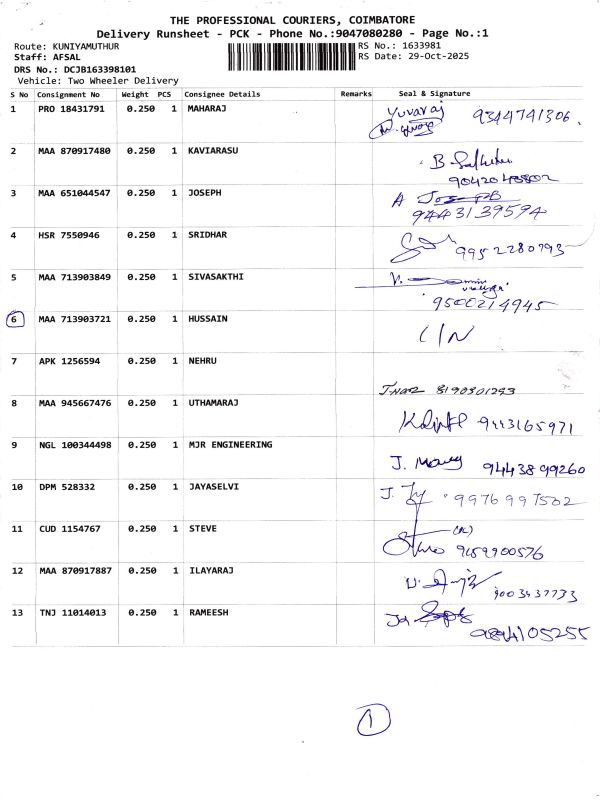 THE PROFESSIONAL COURIERS, COIMBATORE
Delivery Runsheet - PCK - Phone No.:9047080280 - Page No.:1
Route: KUNIYAMUTHUR
RS No.: 1633981
Staff: AFSAL
RS Date: 29-Oct-2025
DRS No.: DCJB163398101
Vehicle: Two Wheeler Delivery
S No Consignment No Weight PCS Consignee Details Remarks Seal & Signature
1 PRO 18431791 0.250 1 MAHARAJ Yuvaraj 9344741306
2 MAA 870917480 0.250 1 KAVIARASU B
3 MAA 651044547 0.250 1 JOSEPH A
9443139594
4 HSR 7550946 0.250 1 SRIDHAR 9952280793
5 MAA 713903849 0.250 1 SIVASAKTHI V.
9500214945
6 MAA 713903721 0.250 1 HUSSAIN
7 APK 1256594 0.250 1 NEHRU
8190801293
8 MAA 945667476 0.250 1 UTHAMARAJ 9443165971
9 NGL 100344498 0.250 1 MJR ENGINEERING J. 9443899260
10 DPM 528332 0.250 1 JAYASELVI J. 9976997502
11 CUD 1154767 0.250 1 STEVE
9659900576
12 MAA 870917887 0.250 1 ILAYARAJ
9003437733
13 TNJ 11014013 0.250 1 RAMEESH
9894105255
1